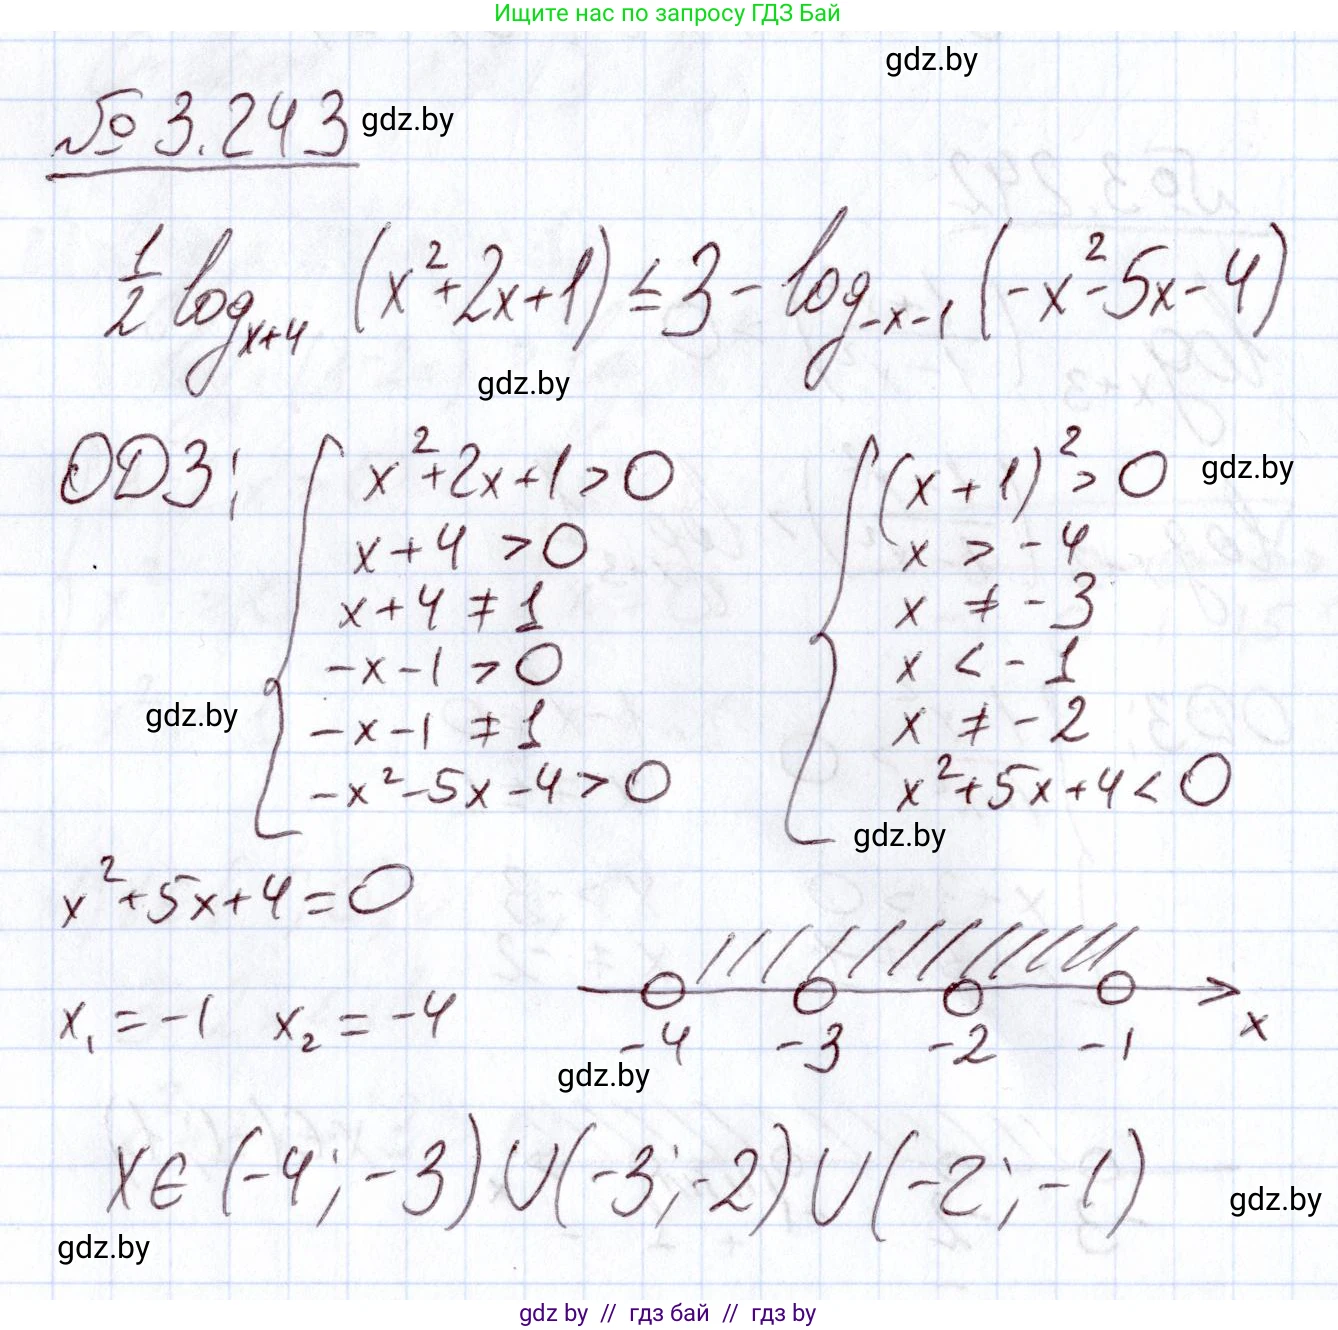 Ищите нас по запросу ГДЗ Бай
gdz.by
№ 3.243 gdz.by
1/2 log_{x+4} (x²+2x+1) ≤ 3 - log_{-x-1} (-x²-5x-4)
gdz.by
ОДЗ: { x²+2x+1 > 0 { (x+1)² > 0 gdz.by
x+4 > 0 x > -4
x+4 ≠ 1 x ≠ -3
-x-1 > 0 x < -1
gdz.by -x-1 ≠ 1 x ≠ -2
-x²-5x-4 > 0 x²+5x+4 < 0
gdz.by
x²+5x+4=0
x₁ = -1 x₂ = -4
-4 -3 -2 -1 x
gdz.by
x ∈ (-4; -3) ∪ (-3; -2) ∪ (-2; -1)
gdz.by
gdz.by
gdz by // гдз бай // гдз by